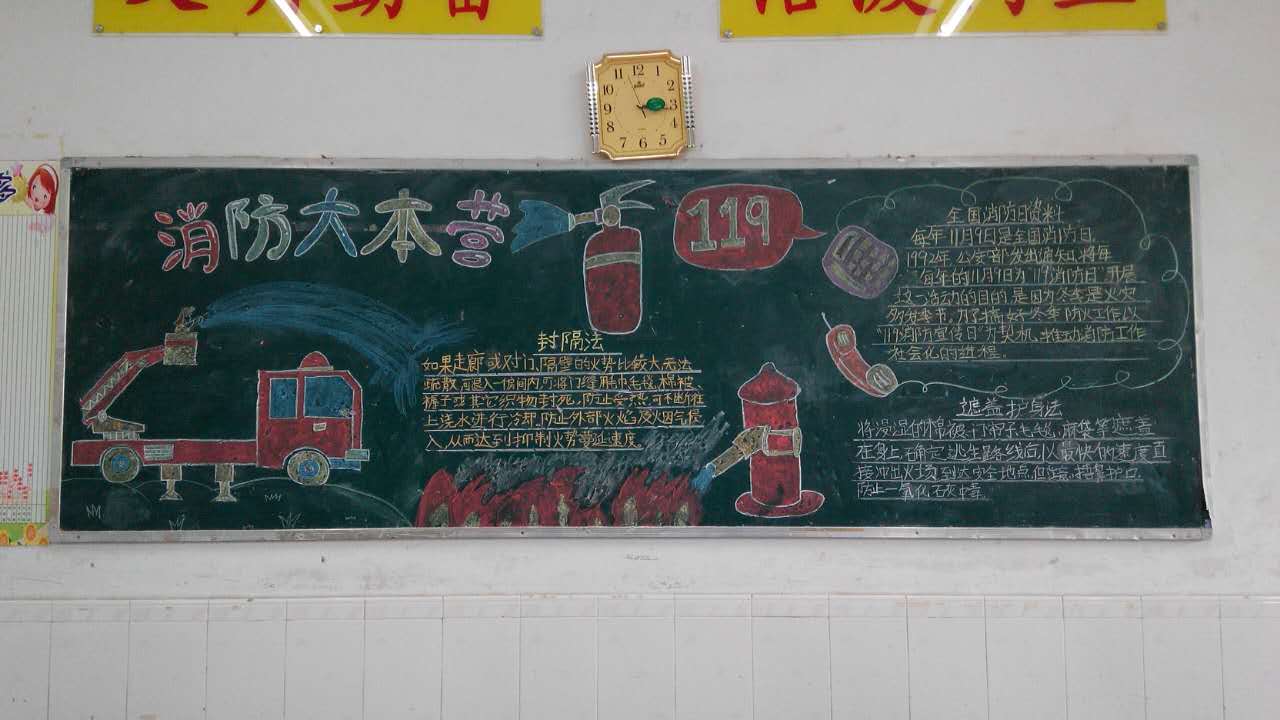 消防大本营
119
全国消防日资料
每年11月9日是全国消防日
1992年公安部发出通知,将每
每年的11月9日为"119消防日"开展
这一活动的目的,是因为冬季是火灾
多为季节,为了搞好冬季防火工作以
"119消防宣传日"为契机,推动消防工作
社会化的进程.
封隔法
如果走廊或对门、隔壁的火势比较大无法
疏散,可退入一房间内,可将门缝用巾毛毯、棉被、
褥子或其它织物封死,防止受热可不断往
上浇水进行冷却.防止外部火焰及烟气侵
入,从而达到抑制火势蔓延速度.
遮盖护身法
将浸湿的棉被、门帘毛毯、麻袋等遮盖
在身上确定逃生路线后以最快的速度直
接冲出火场到达安全地点但注意,捂鼻护口
防止一氧化碳中毒
12
1
2
3
4
5
6
7
8
9
10
11